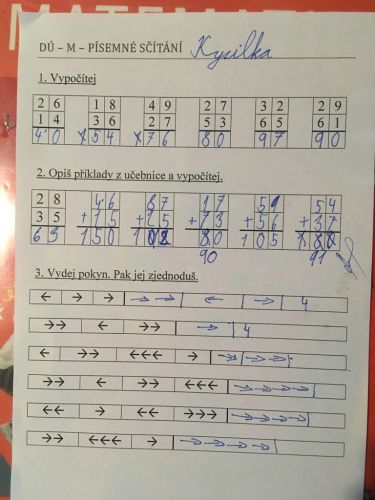 MATEMATI
DÚ – M – PÍSEMNÉ SČÍTÁNÍ Kysilka
1. Vypočítej
2 6 1 8 4 9 2 7 3 2 2 9
1 4 3 6 2 7 5 3 6 5 6 1
4 0 54 76 8 0 9 7 9 0
2. Opiš příklady z učebnice a vypočítej.
2 8 46 87 17 54
3 5 +15 +73 +56 +37
6 3 80 105
90 91
3. Vydej pokyn. Pak jej zjednoduš.
← → → →→ ← → 4
→→ ← →→ → 4
← →→ ←←← →
→→ ← →→ ←←← →→→→
←← → ←← →→→ →→→→
→→ ←←← → →→→→